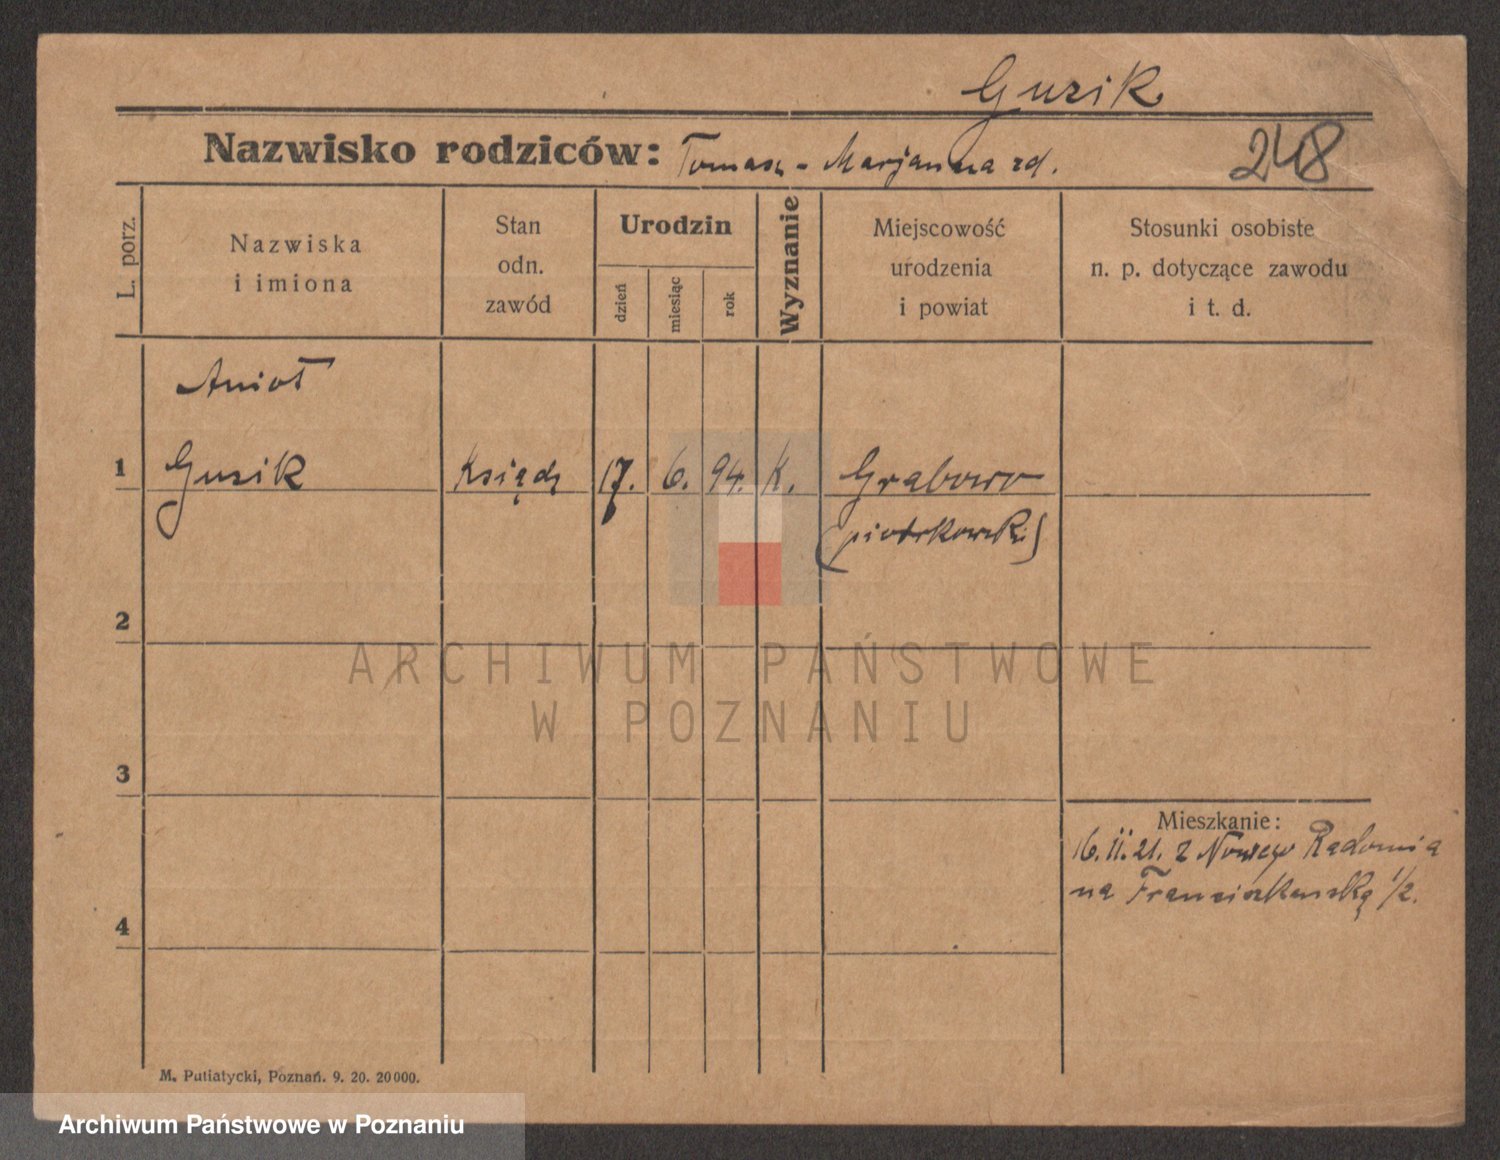 Gusik
Nazwisko rodziców: Tomasz - Marjanna zd.
248
L. porz.
Nazwiska
i imiona
Stan
odn.
zawód
Urodzin
dzień
miesiąc
rok
Wyznanie
Miejscowość
urodzenia
i powiat
Stosunki osobiste
n. p. dotyczące zawodu
i t. d.
Anioł
1 Gusik Ksiądz 17. 6. 94. K. Grabowo
(piotrkowski)
2
ARCHIWUM PAŃSTWOWE
W POZNANIU
3
Mieszkanie:
16. II. 21. z Nowego Radomia
na Franciszkańską 1/2.
4
M. Putiatycki, Poznań. 9. 20. 20000.
Archiwum Państwowe w Poznaniu